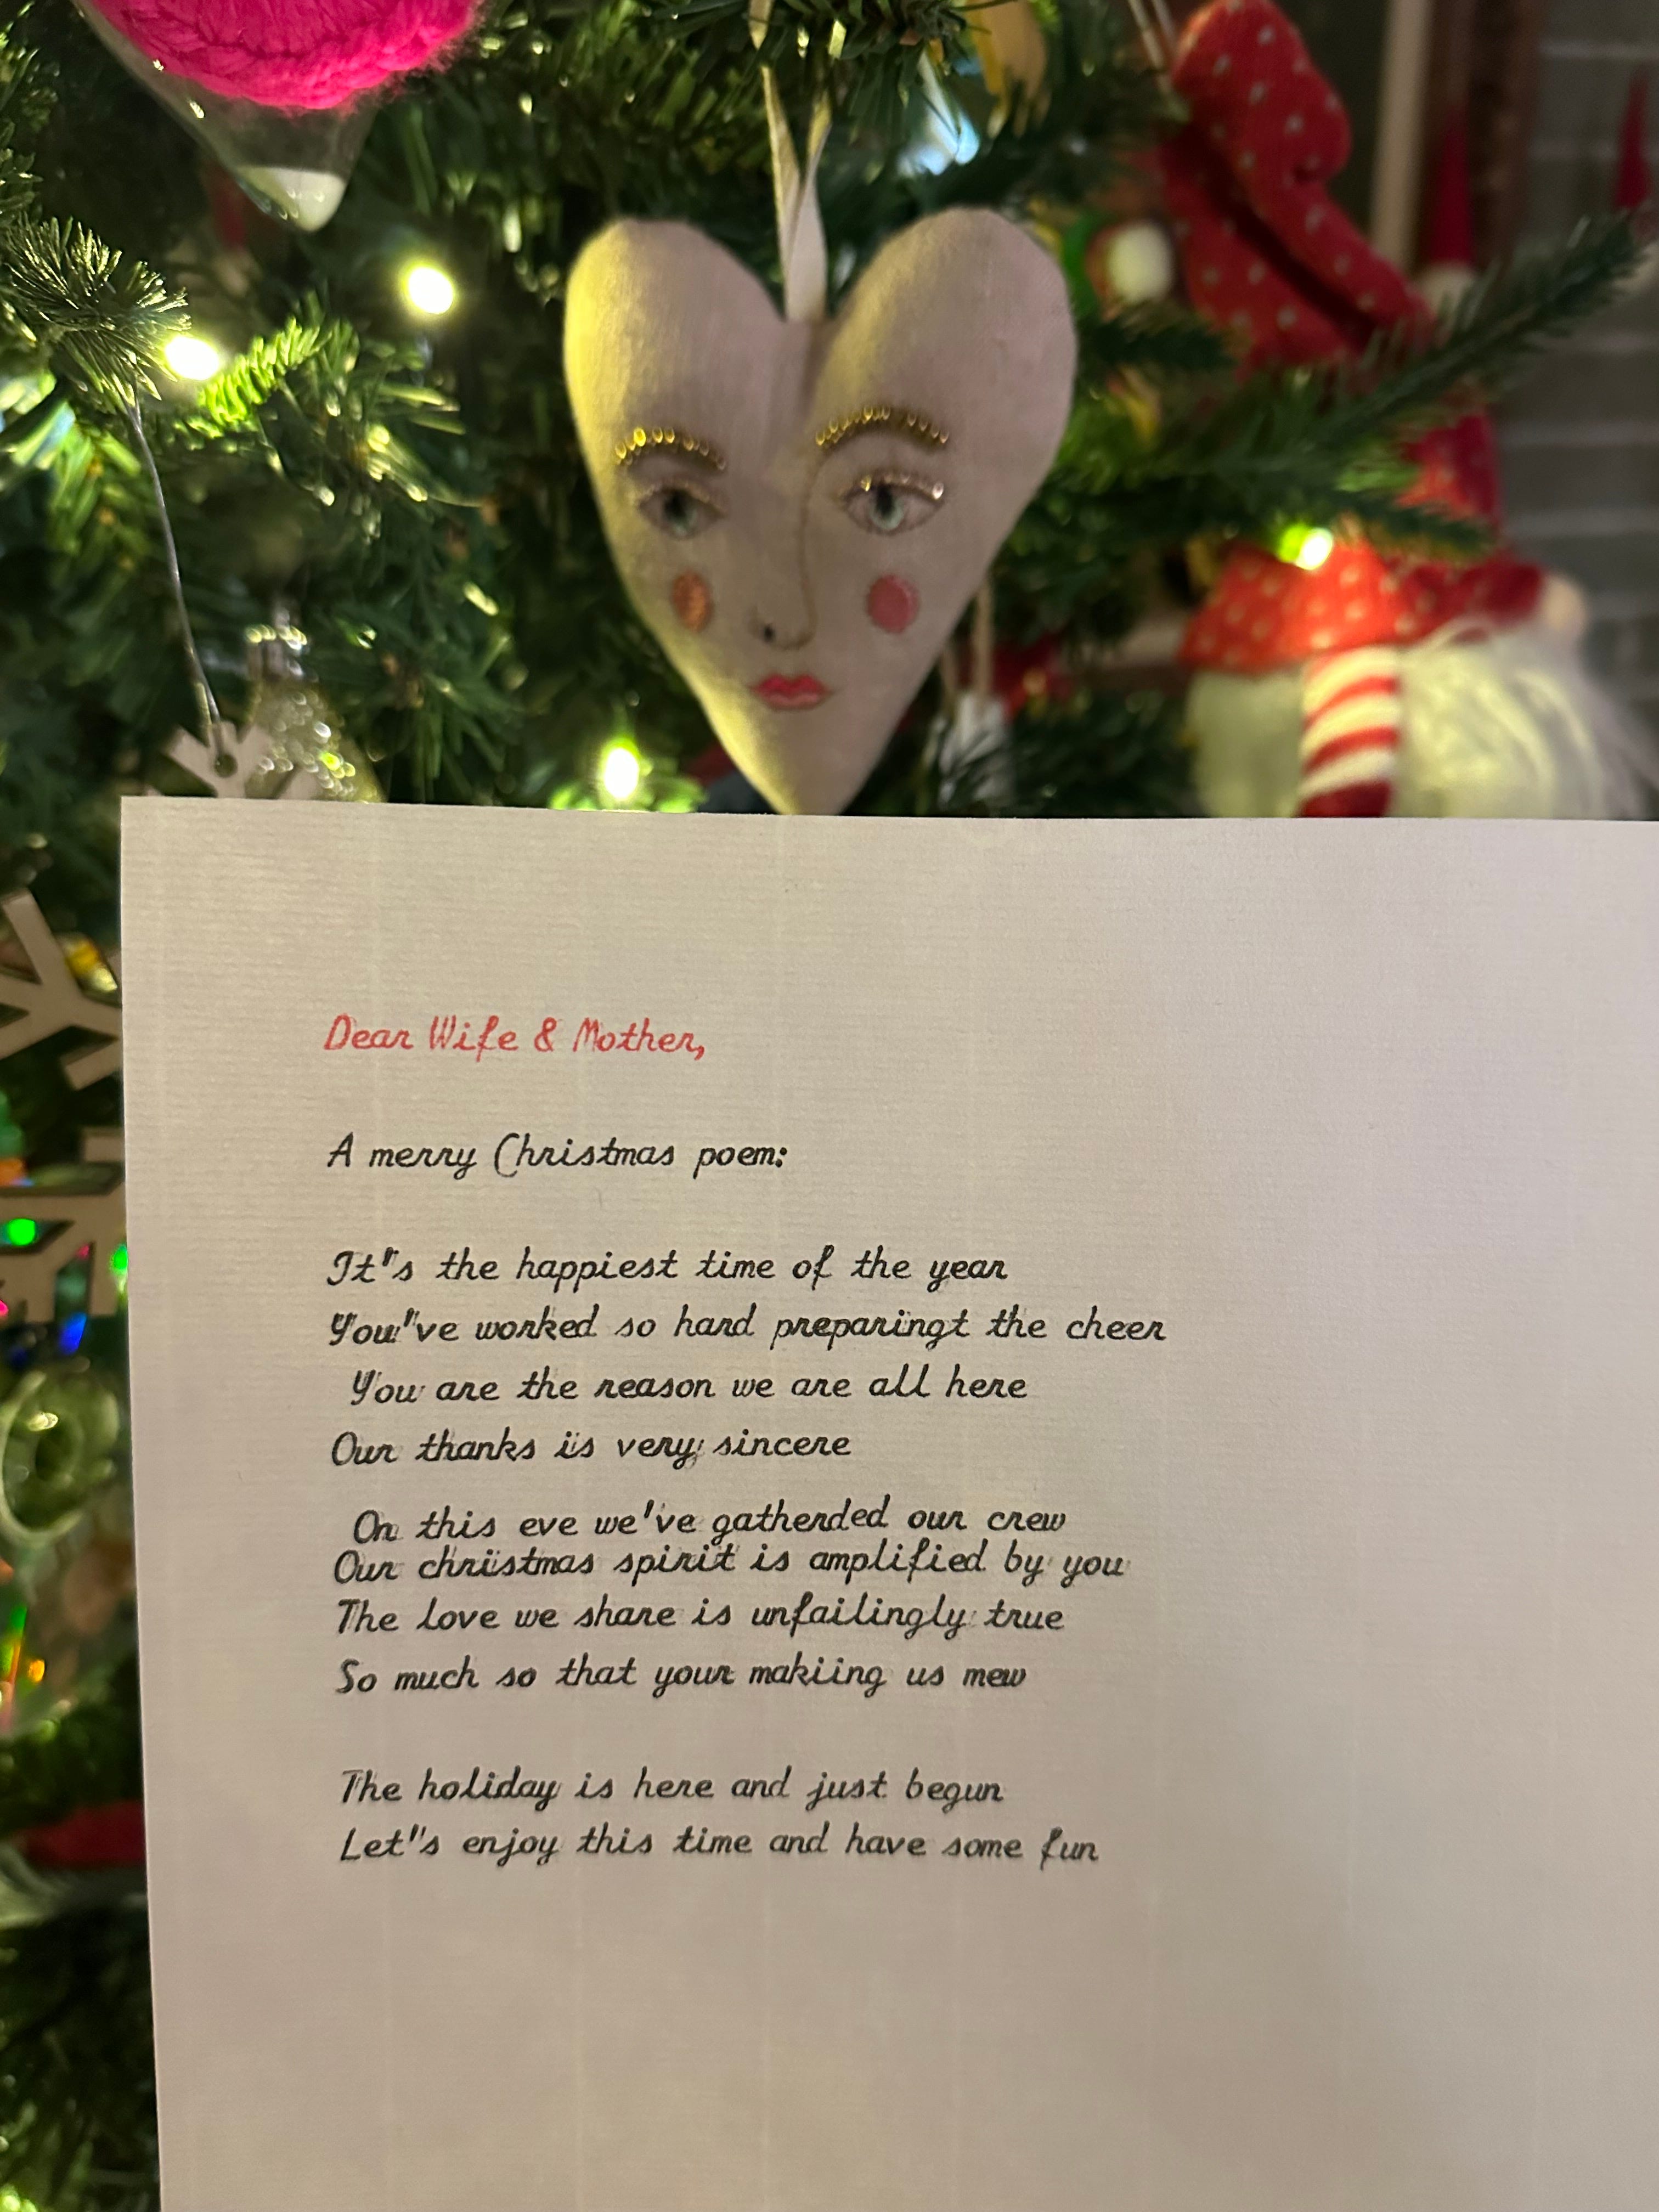 Dear Wife & Mother,
A merry Christmas poem:
It"s the happiest time of the year
You've worked so hard preparingt the cheer
You are the reason we are all here
Our thanks is very sincere
On this eve we've gatherded our crew
Our christmas spirit is amplified by you
The love we share is unfailingly true
So much so that your makiing us mew
The holiday is here and just begun
Let"s enjoy this time and have some fun